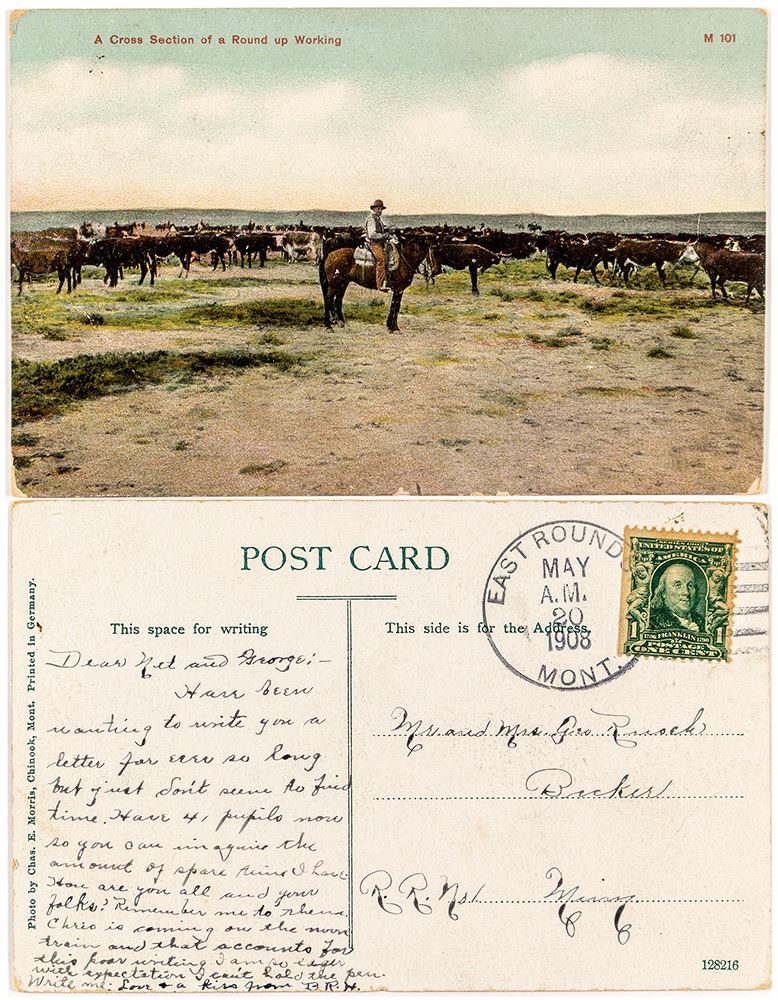 A Cross Section of a Round up Working
M 101
POST CARD
EAST ROUND
MAY
A.M.
20
1908
MONT.
SERIES 1902
UNITED STATES OF
AMERICA
1
1706 FRANKLIN 1790
1
POSTAGE
ONE CENT
This space for writing
This side is for the Address.
Photo by Chas. E. Morris, Chinook, Mont. Printed in Germany.
Dear Net and George:-
Have been
wanting to write you a
letter for ever so long
but just don't seem to find
time. Have 41 pupils now
so you can imagine the
amount of spare time I have.
How are you all and your
folks? Remember me to them.
Chris is coming on the noon
train and that accounts for
this poor writing. I am so eager
with expectation I can't hold the pen.
Write me. Love & a kiss from B.R.H.
Mr. and Mrs. Geo
Bicker
R.R. No 1 Minn
128216